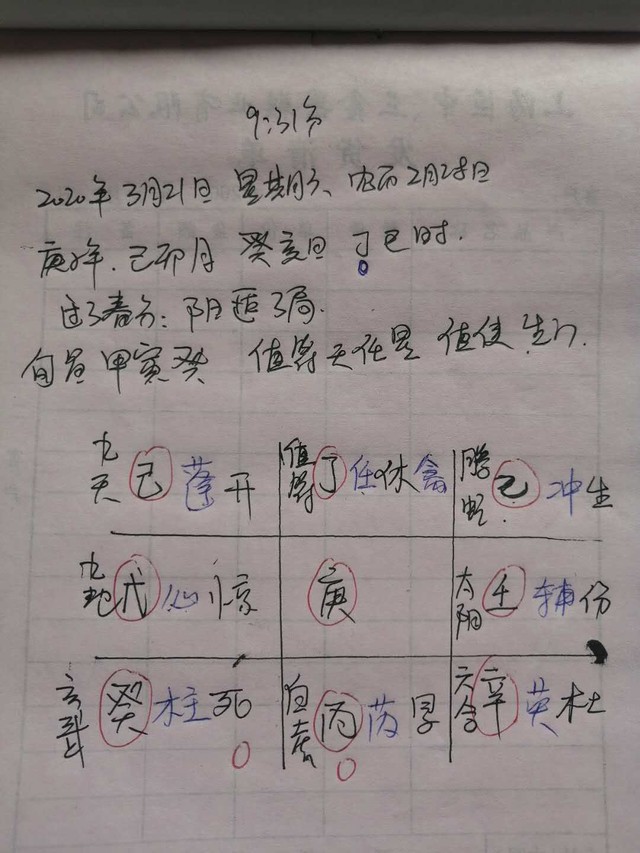 9:31分
2020年3月21日 星期六、农历2月28日
庚子年、己卯月 癸亥日 丁巳时.
过了春分: 阳遁3局.
旬首甲寅癸 值符天任星 值使生门.
九天 己 蓬 开 值符 丁 任 休 禽 腾蛇 乙 冲 生
九地 戊 心 惊 庚 太阴 壬 辅 伤
玄武 癸 柱 死 白虎 丙 芮 景 六合 辛 英 杜